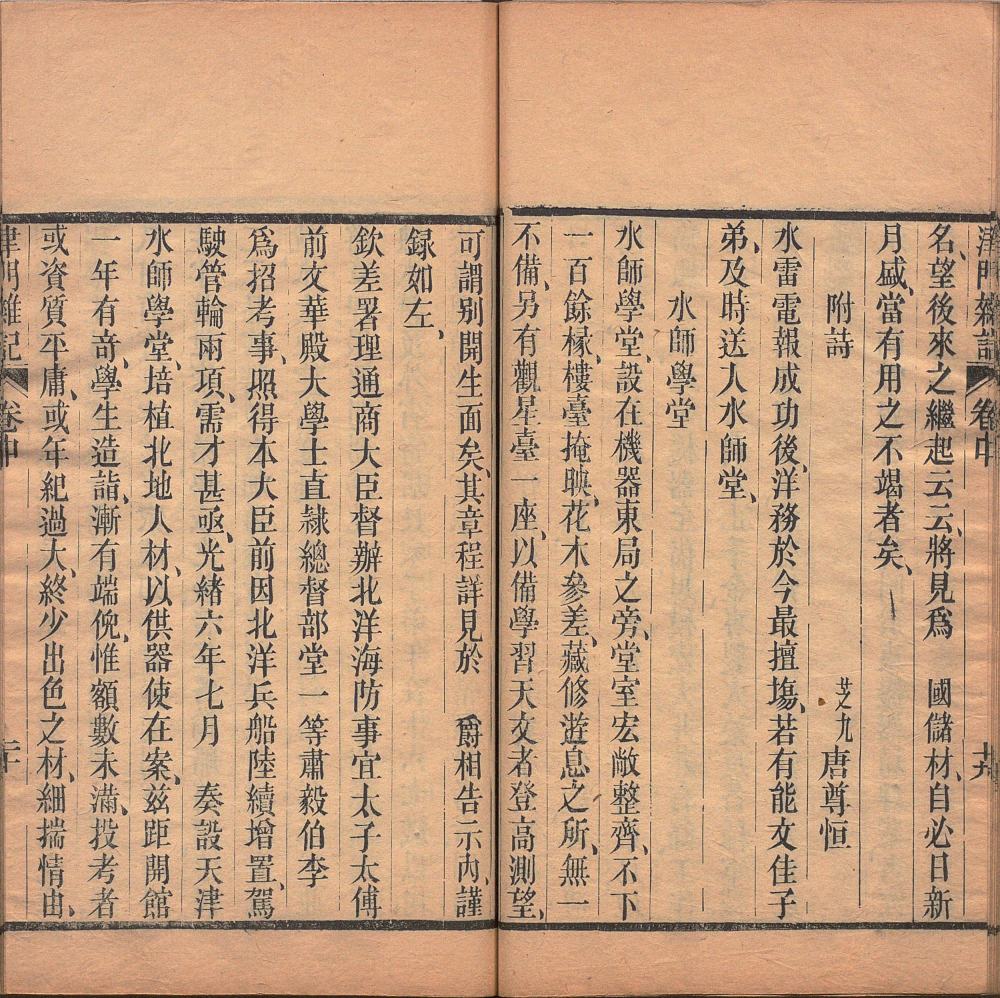 津門雜記 卷中 十九
名、望後來之繼起云云、將見爲 國儲材、自必日新
月盛、當有用之不竭者矣、
附詩 芝九唐尊恒
水雷電報成功後、洋務於今最擅塲、若有能文佳子
弟、及時送入水師堂、
水師學堂
水師學堂、設在機器東局之旁、堂室宏敞整齊、不下
一百餘椽、樓臺掩映、花木參差、藏修遊息之所、無一
不備、另有觀星臺一座、以備學習天文者登高測望、
可謂別開生面矣、其章程詳見於 爵相告示內、謹
録如左、
欽差署理通商大臣督辦北洋海防事宜太子太傅
前文華殿大學士直隷總督部堂一等肅毅伯李
爲招考事、照得本大臣前因北洋兵船陸續增置、駕
駛管輪兩項、需才甚亟、光緒六年七月 奏設天津
水師學堂、培植北地人材、以供器使在案、兹距開館
一年有奇、學生造詣、漸有端倪、惟額數未滿、投考者
或資質平庸、或年紀過大、終少出色之材、細揣情由、
津門雜記 卷中 二十